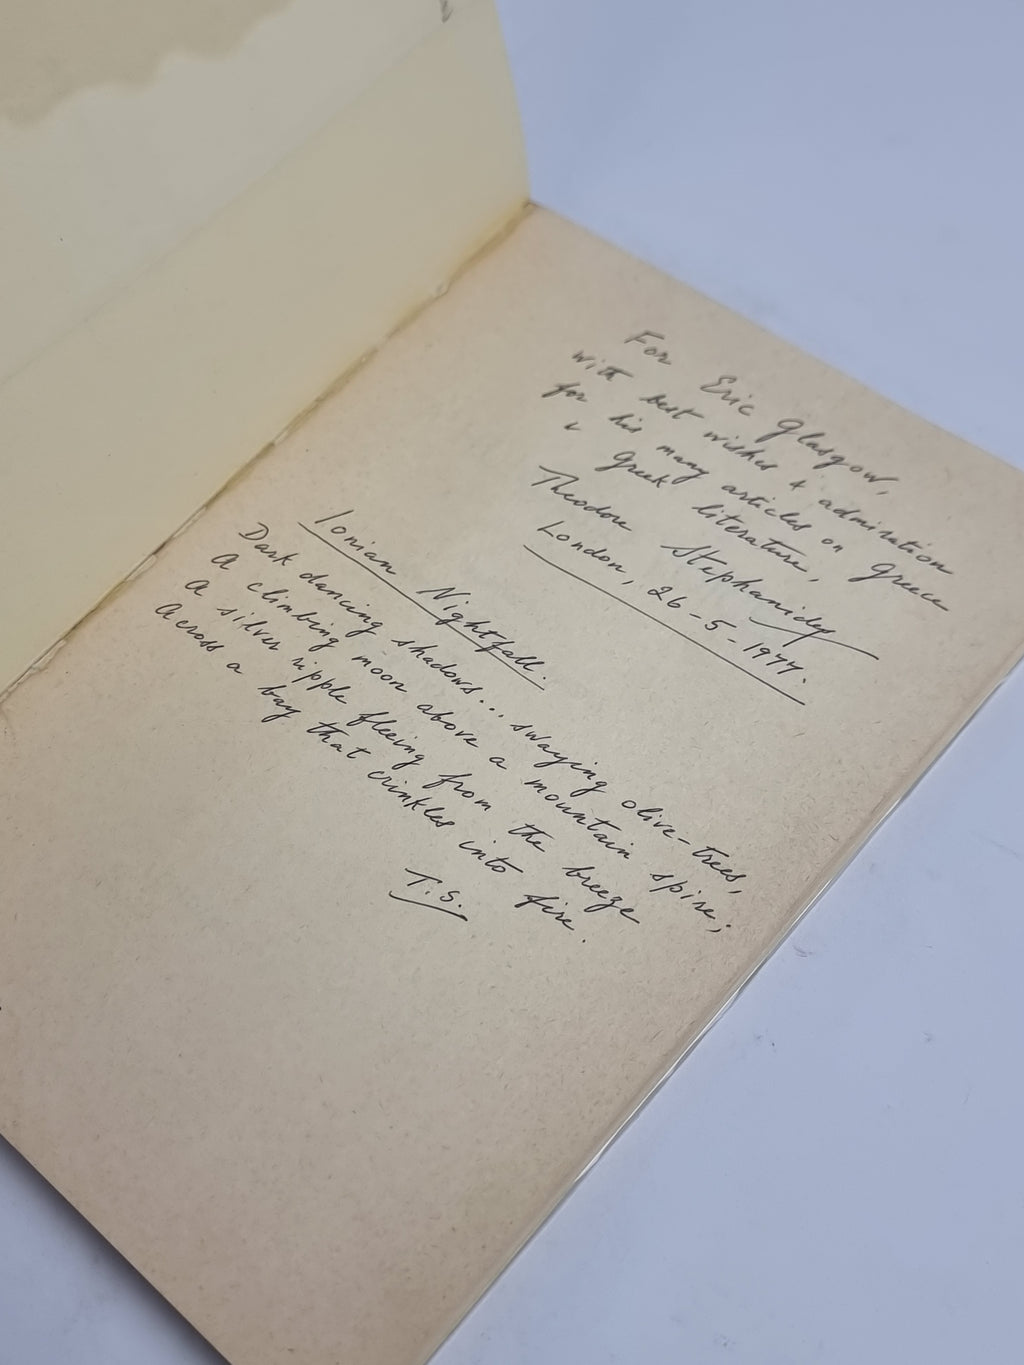 For Eric Glasgow,
with best wishes & admiration
for his many articles on Greece
& Greek literature,
Theodore Stephanides
London, 26-5-1977.
Ionian Nightfall.
Dark dancing shadows... swaying olive-trees,
A climbing moon above a mountain spire;
A silver ripple fleeing from the breeze
Across a bay that crinkles into fire.
T.S.